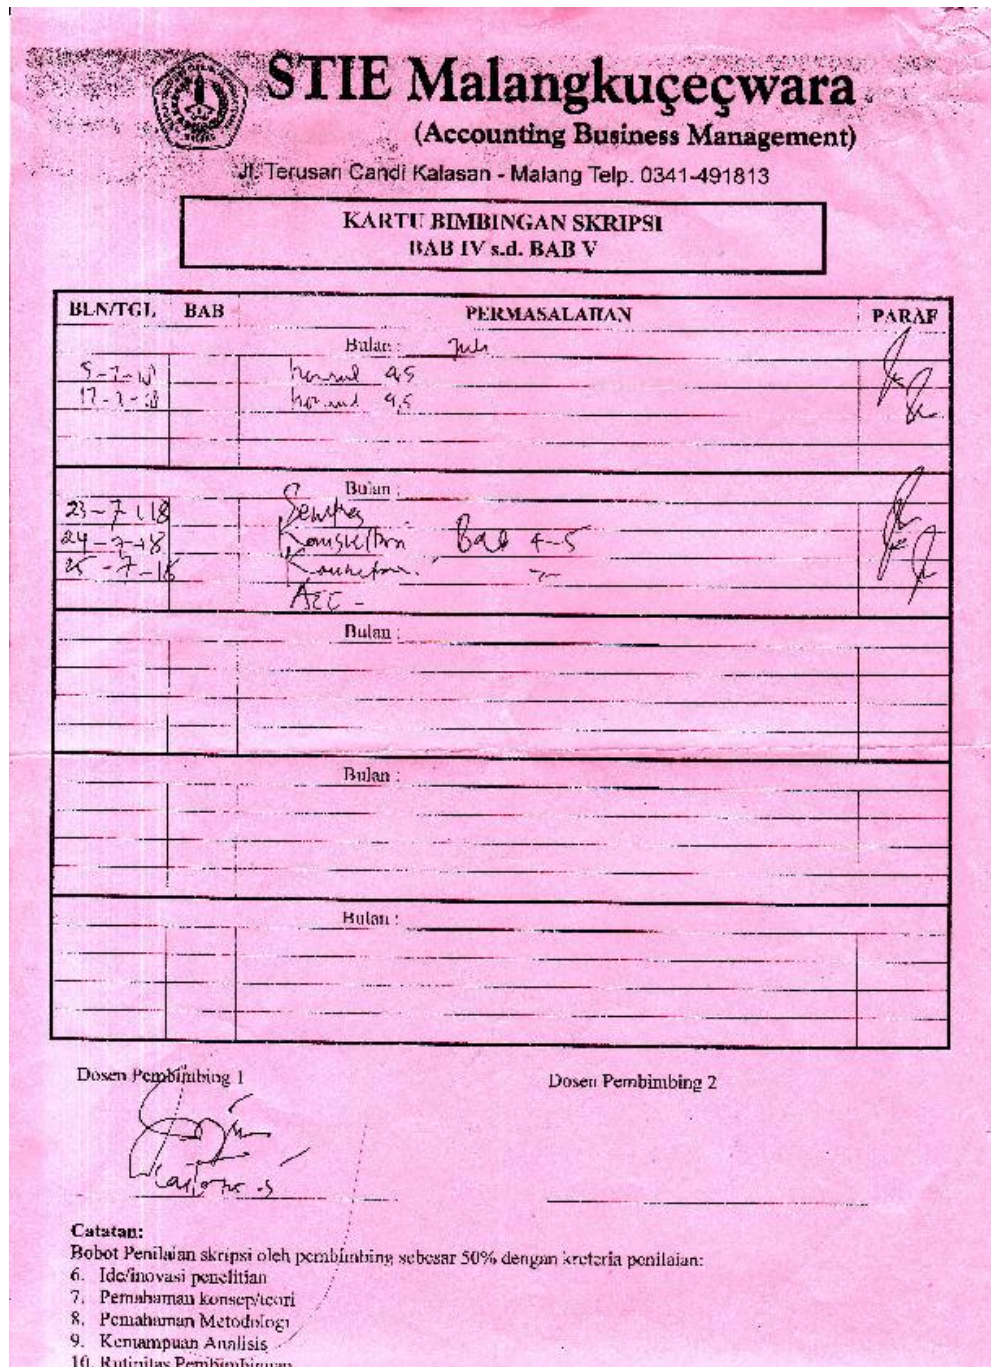 STIE Malangkuçeçwara
(Accounting Business Management)
Jl. Terusan Candi Kalasan - Malang Telp. 0341-491813
KARTU BIMBINGAN SKRIPSI
BAB IV s.d. BAB V
BLN/TGL BAB PERMASALAHAN PARAF
Bulan : Juli
5-7-18 4,5
17-7-18 4,5
Bulan :
23-7-18
24-7-18 Bab 4-5
25-7-18
ACC -
Bulan :
Bulan :
Bulan :
Dosen Pembimbing 1 Dosen Pembimbing 2
Catatan:
Bobot Penilaian skripsi oleh pembimbing sebesar 50% dengan kreteria penilaian:
6. Ide/inovasi penelitian
7. Pemahaman konsep/teori
8. Pemahaman Metodologi
9. Kemampuan Analisis
10. Rutinitas Pembimbingan